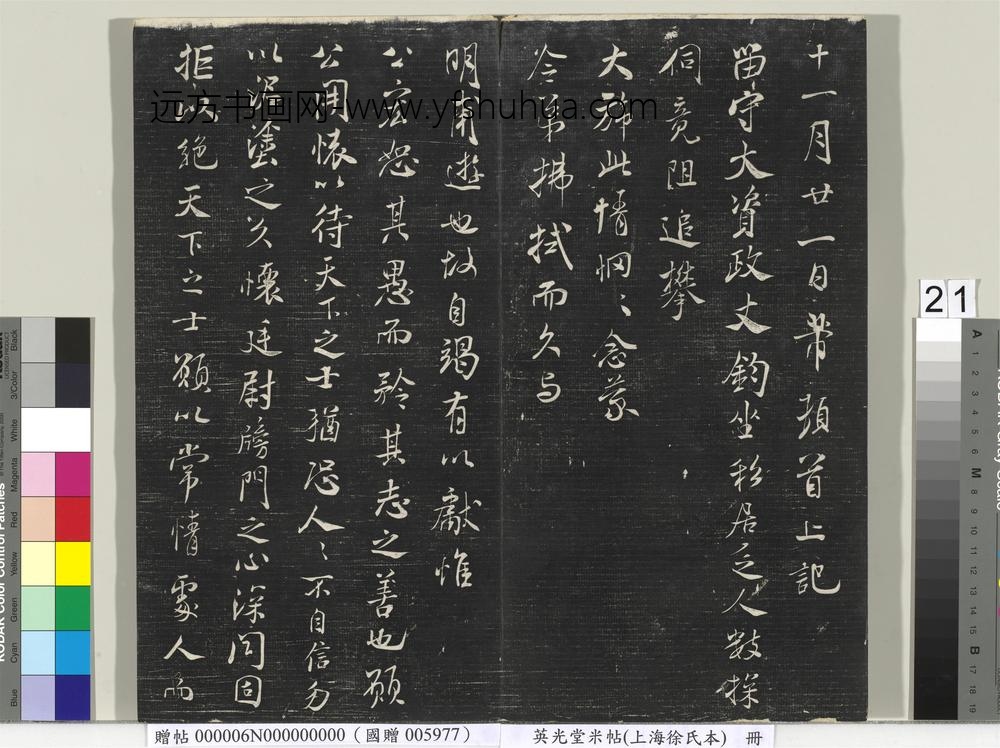 十一月廿一日芾頓首上記
留守大資政丈鈞坐移居乏人數探
伺竟阻追攀
大旆此情惘〻念蒙
令弟拂拭而久与
明開遊也故自竭有以獻惟
公宏恕其愚而矜其志之善也願
公開懷以待天下之士猶恐人〻不自信勿
以塗之久懷廷尉牓門之心深閇固
拒以絕天下之士願以常情處人而
远方书画网-www.yfshuhua.com
21
贈帖 000006N000000000（國贈 005977）
英光堂米帖(上海徐氏本) 冊
KODAK Color Control Patches
Blue
Cyan
Green
Yellow
Red
Magenta
White
3/Color
Black
A
1
2
3
4
5
6
M
8
9
10
11
12
13
14
15
B
17
18
19